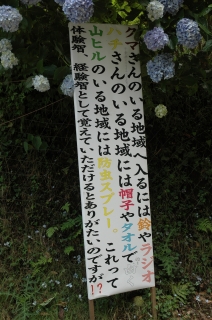 クマさんのいる地域へ入るには鈴やラジオ
ハチさんのいる地域には帽子やタオルで
山ヒルのいる地域には防虫スプレー。これって
体験習、経験習として覚えていただけるとありがたいのですが!?